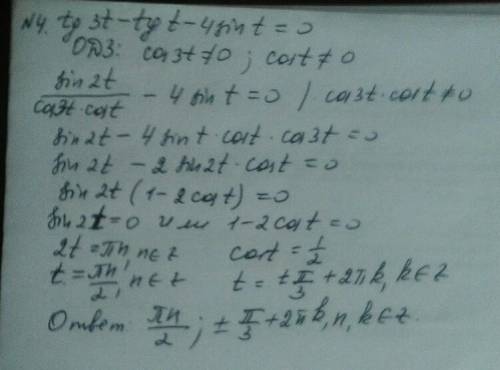 №4. tg 3t - tg t - 4 sin t = 0
ОДЗ: cos3t ≠ 0 ; cost ≠ 0
sin2t / cos3t·cost - 4 sin t = 0 / cos3t·cost ≠ 0
sin2t - 4 sint·cost·cos3t = 0
sin2t - 2 sin2t·cost = 0
sin2t (1 - 2cost) = 0
sin2t = 0 или 1 - 2cost = 0
2t = πn, n∈z cost = 1/2
t = πn/2, n∈z t = ±π/3 + 2πk, k∈z
Ответ: πn/2 ; ± π/3 + 2πk, n, k∈z.